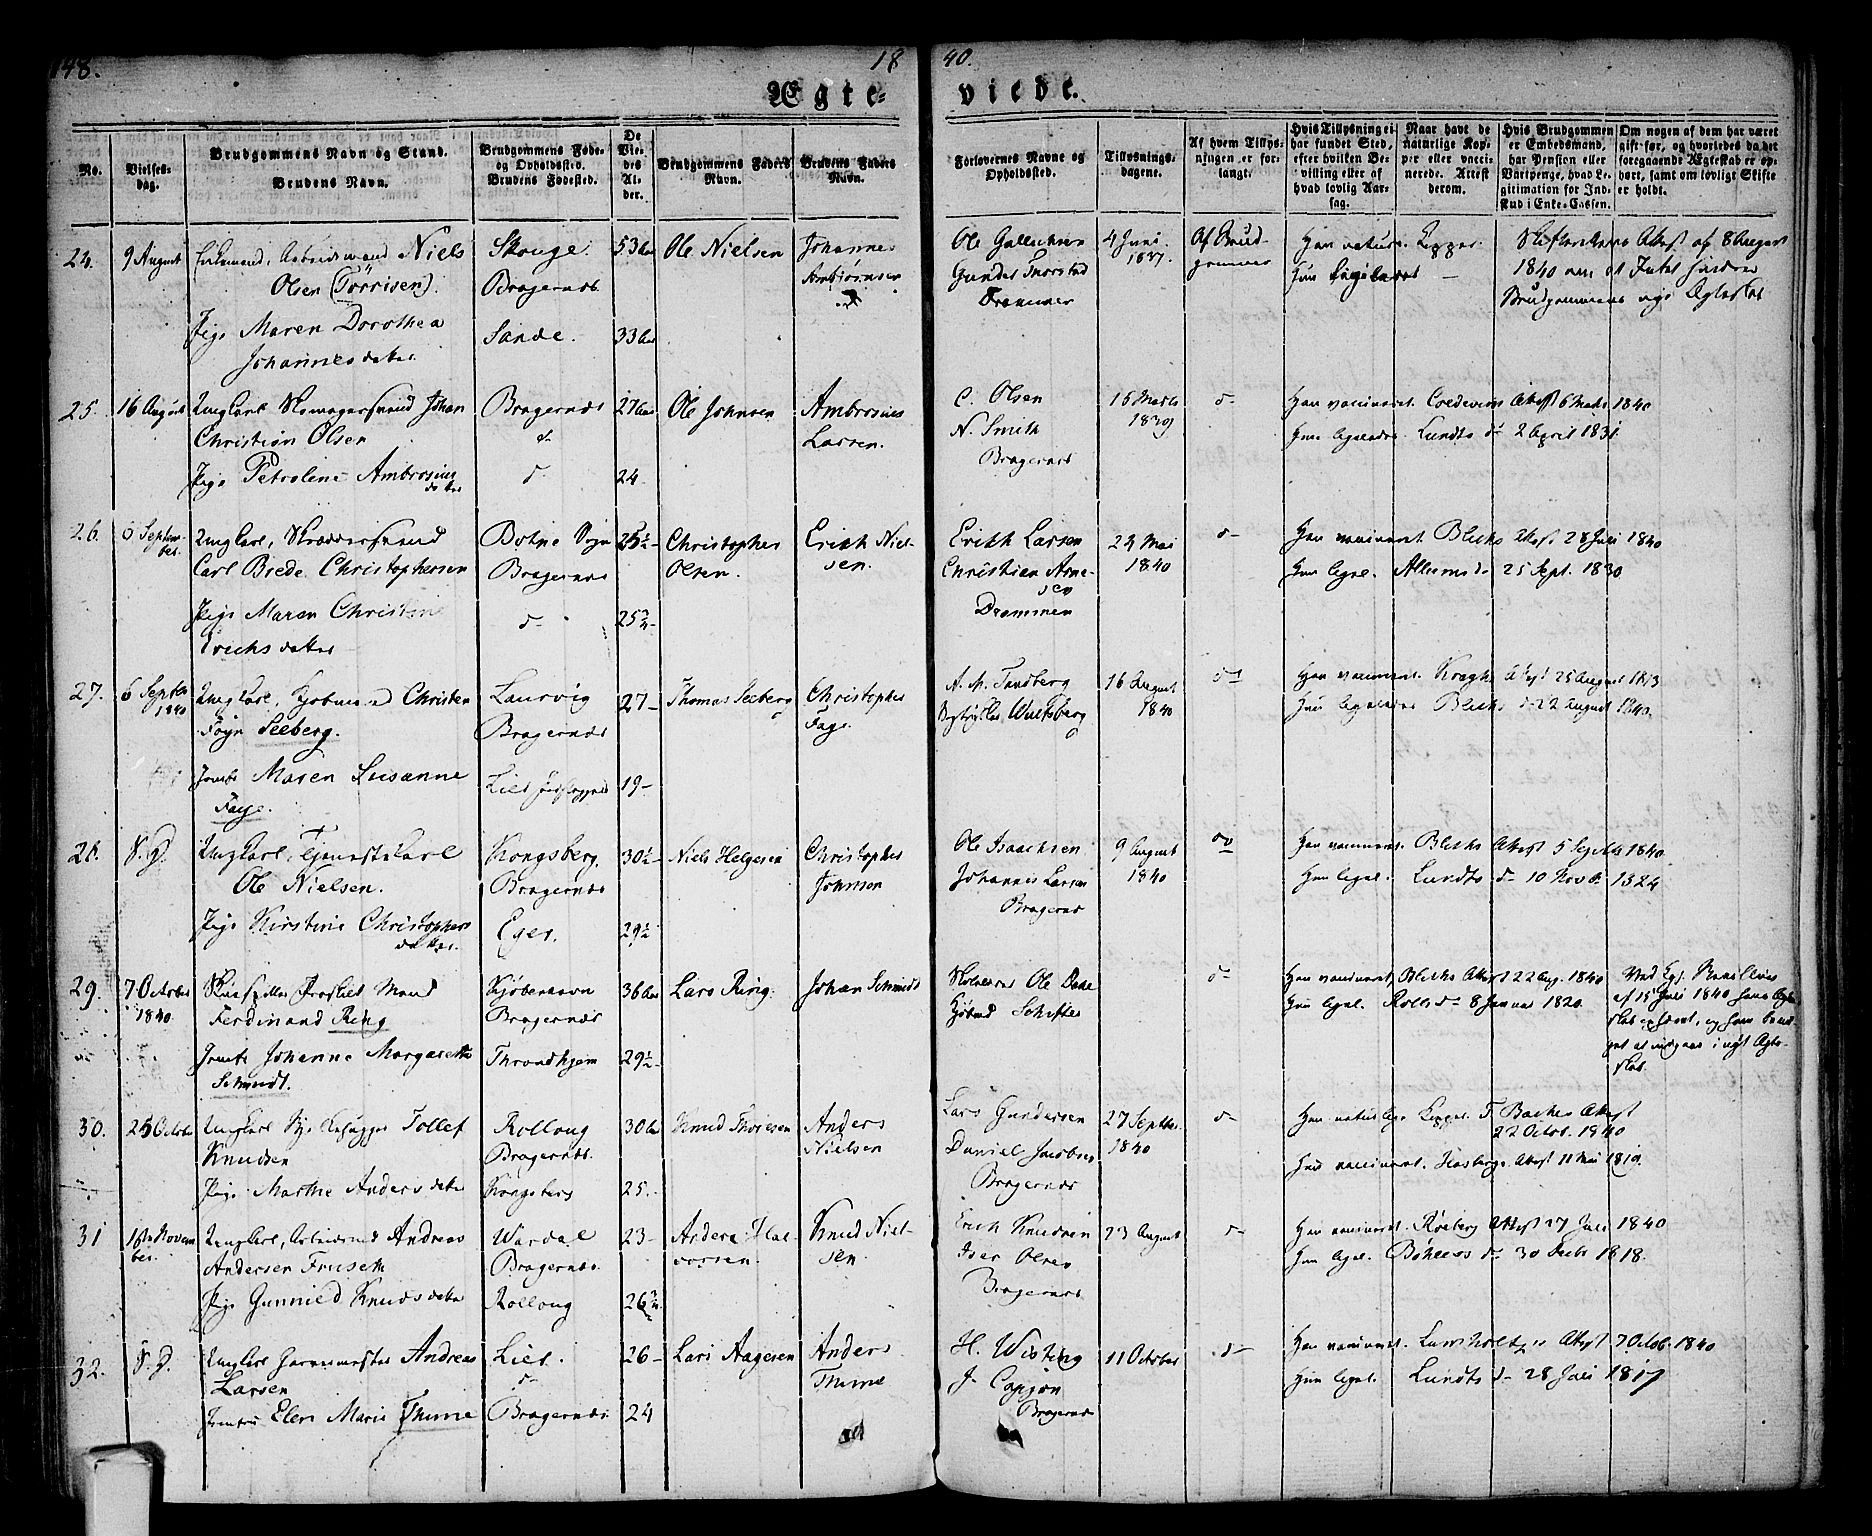 148.
18
40.
Ægte-
viede.
No.
Vielses-
dag.
Brudgommens Navn og Stand.
Brudens Navn.
Brudgommens Føde-
og Opholdssted.
Brudens Fødested.
De
Vie-
des
Al-
der.
Brudgommens Faders
Navn.
Brudens Faders
Navn.
Forlovernes Navne og
Opholdssted.
Tillysnings-
dagene.
Af hvem Tillys-
ningen er for-
langt.
Hvis Tillysning ei
har fundet Sted,
efter hvilken Be-
villing eller af
hvad lovlig Aar-
sag.
Naar havt de
naturlige Kop-
per eller vacci-
nerede. Attest
derom.
Hvis Brudgommen
er Embedsmand,
har Pension eller
Vartpenge, hvad Le-
gitimation for Ind-
skud i Enke-Cassen.
Om nogen af dem har været
gift før, og hvorledes da det
foregaaende Ægteskab er op-
hørt, samt om lovligt Skifte
er holdt.
24. 9 August Enkemand, Arbeidsmand Niels
Olsen (Tørrisen).
Pige Maren Dorothea
Johannesdatter
Skouge.
Bragernæs
Sande.
53 Aar
33 Aar
Ole Nielsen
Johannes
4 Juni
1837
Af Brud-
gommen
Drammen
Attest af 8 August
1840 om at Intet hindrer
Brudgommens nye Ægteskab
25. 16 August Ungkarl Skomagersvend Johan
Christian Olsen
Pige Petroline Ambrosius
datter
Bragernæs
27 Aar
24
Ole Johnsen
Ambrosius
Larsen.
C. Olsen
N. Smith
Bragernæs
1839
Han vaccineret. Attest 6 Marts 1840
Hun ligeledes Lundts d 2 April 1831.
26. 6 Septem-
ber. Ungkarl, Skræddersvend
Carl Brede Christophersen
Pige Maren Christine
Erichsdatter
Botne Sogn
Bragernæs
25½
25¾
Christopher
Olsen.
Erich Niel-
sen.
Erikh Larsen
Christian Arne-
sen
Drammen
24 Mai
1840
Han vaccineret Blichs Attest 28 Juli 1840
Hun ligel. 25 Sept. 1830
27. 6 Septbr
1840 Ungkarl, Kjøbmand Christen
Føyn Seeberg.
Jomfr Maren Susanne
Faye.
Laurvig
Bragernæs
Lier
27
19
Thomas Seeberg
Christopher
Faye
Tandberg
Wulfsberg
16 August
1840
Han vaccineret Kraghs Attest 25 August 1813
Hun ligeledes Blichs d 22 August 1840.
28. S. D. Ungkarl, Tjenestekarl
Ole Nielsen.
Pige Kirstine Christophers
datter.
Kongsberg.
Bragernæs
Eger.
30½
29½
Niels Helgesen
Christopher
Johnsen
Ole Isaachsen
Johannes Larsen
Bragernæs
9 August
1840
Han vaccineret. Blichs Attest 5 Septbr 1840
Hun ligel. Lundts d 10 Novb. 1824
29. 7 October
1840. Skuespiller Fraskilt Mand
Ferdinand Ring
Jomfr Johanne Margarethe
Schmidt.
Kjøbenhavn
Bragernæs
Throndhjem
36 Aar
29½
Lars Ring.
Johan Schmidt
Ole Dahl
Han vaccineret, Blichs Attest 22 Aug. 1840
Hun ligel. d 8 Januar 1820.
af 15 Juli 1840
30. 25 October Ungkarl Tollef
Knudsen
Pige Marthe Andersdatter
Rolloug
Bragernæs.
Kongsberg
30 Aar
25.
Knud Thoresen
Anders
Nielsen
Lars Gundersen
Daniel Jacobsen
Bragernæs
27 Septbr.
1840
Han naturlige Kopper. T. Baches Attest
22 Octob. 1840
Hun vaccineret. Attest 11 Mai 1819.
31 16de Novem
ber. Ungkarl, Arbeidsmand Andreas
Andersen Fruseth
Pige Gunnild Knudsdatter
Wardal
Bragernæs.
Rolloug
23
26¾
Anders Hal-
vorsen.
Knud Niel-
sen
Erich Knudsen
Iver Olsen
Bragernæs
23 August
Han vaccineret. Attest 27 Juli 1840
Hun ligel. d 30 Decbr 1818.
32. S. D. Ungkarl Garvermester Andreas
Larsen
Jomfru Elen Marie Thime
Lier.
Bragernæs
26
24
Lars Aagesen
Anders
Thime
H. Wisting
J. Capjon
Bragernæs
11 October
Han vaccineret. Attest 7 Octob. 1840
Hun ligel. Lundts d 28 Juli 1817